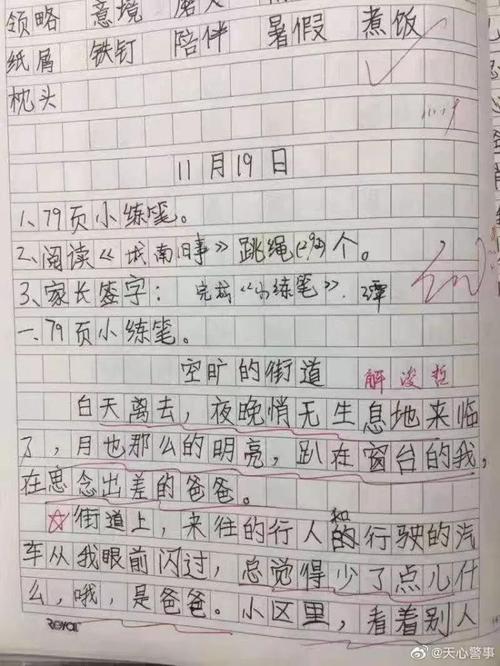 领略 意境 磨灭
纸屑 铁钉 陪伴 暑假 煮饭
枕头
11.19
11月19日
1、79页小练笔。
2、阅读《城南旧事》跳绳(292)个。
3、家长签字：完成《小练笔》. 谭
一、79页小练笔。
空旷的街道 解浚哲
白天离去，夜晚悄无生息地来临
了，月也那么的明亮，趴在窗台的我，
在思念出差的爸爸。
☆街道上，来往的行人和的行驶的汽
车从我眼前闪过，总觉得少了点儿什
么，哦，是爸爸。小区里，看着别人
Royal
@天心警事